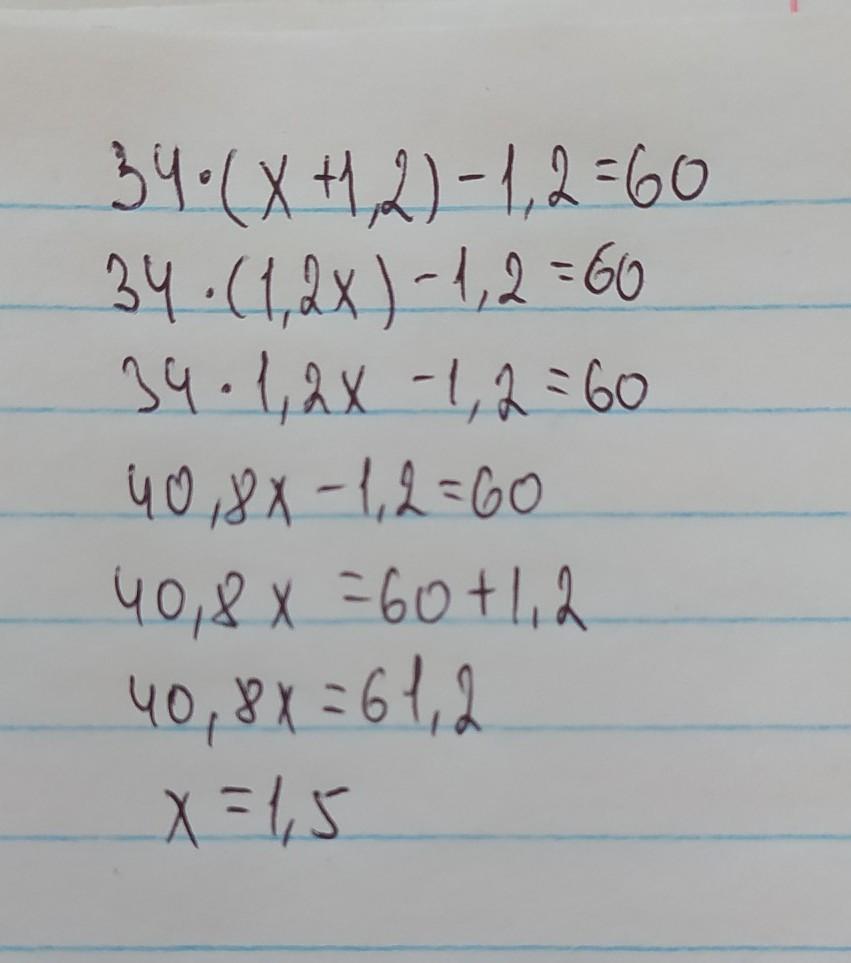 34·(x+1,2)-1,2=60
34·(1,2x)-1,2=60
34·1,2x-1,2=60
40,8x-1,2=60
40,8x=60+1,2
40,8x=61,2
x=1,5